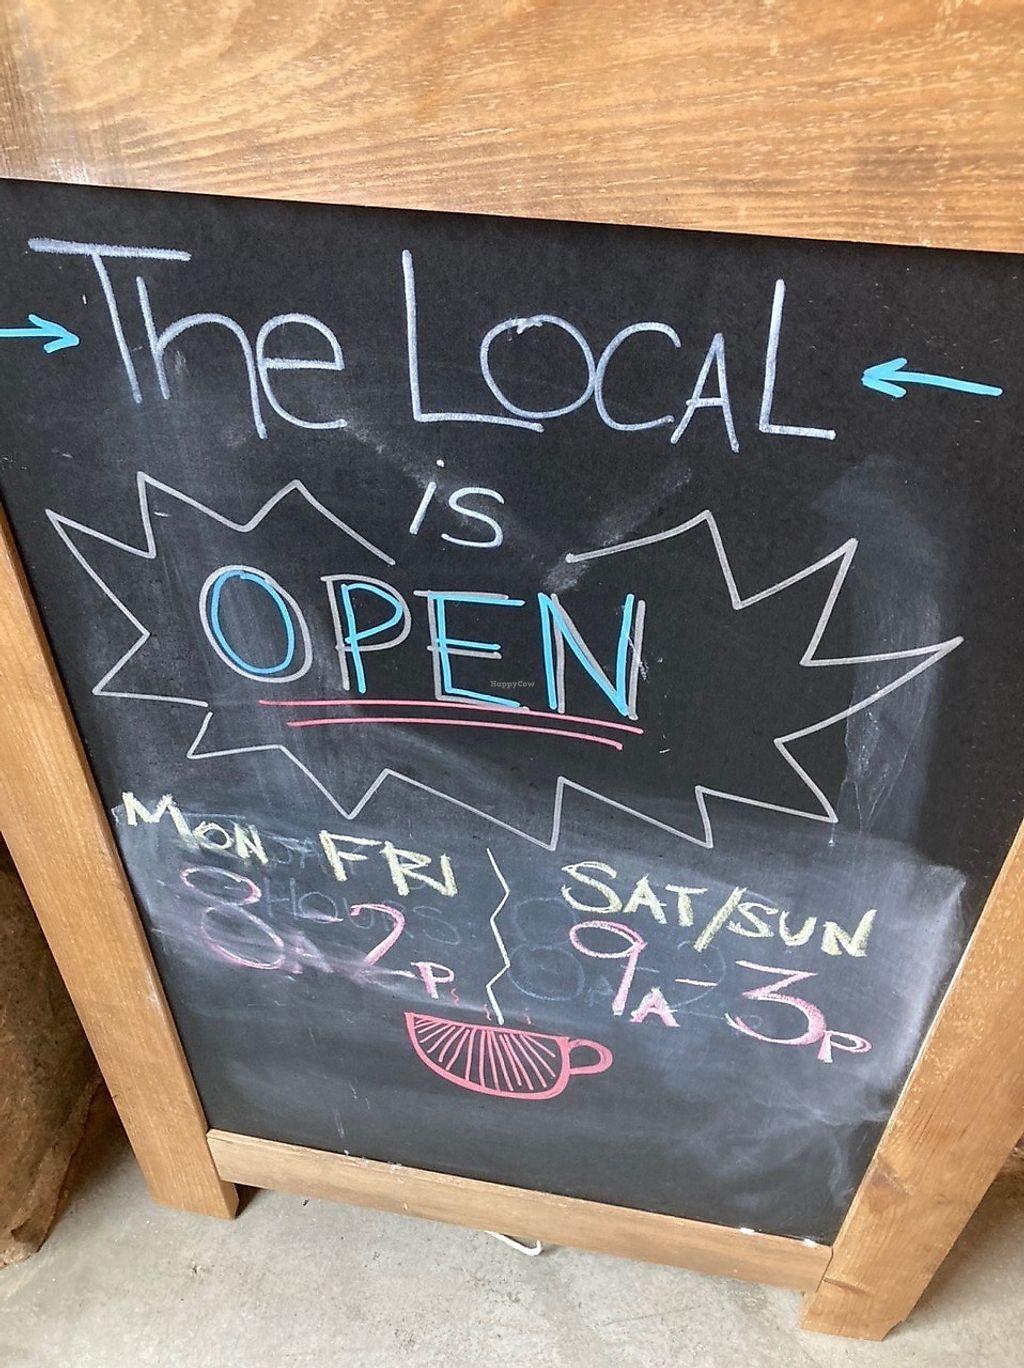 The LOCAL
is
OPEN
HappyCow
MON FRI
8A-2P
SAT/SUN
9A-3P
HOURS